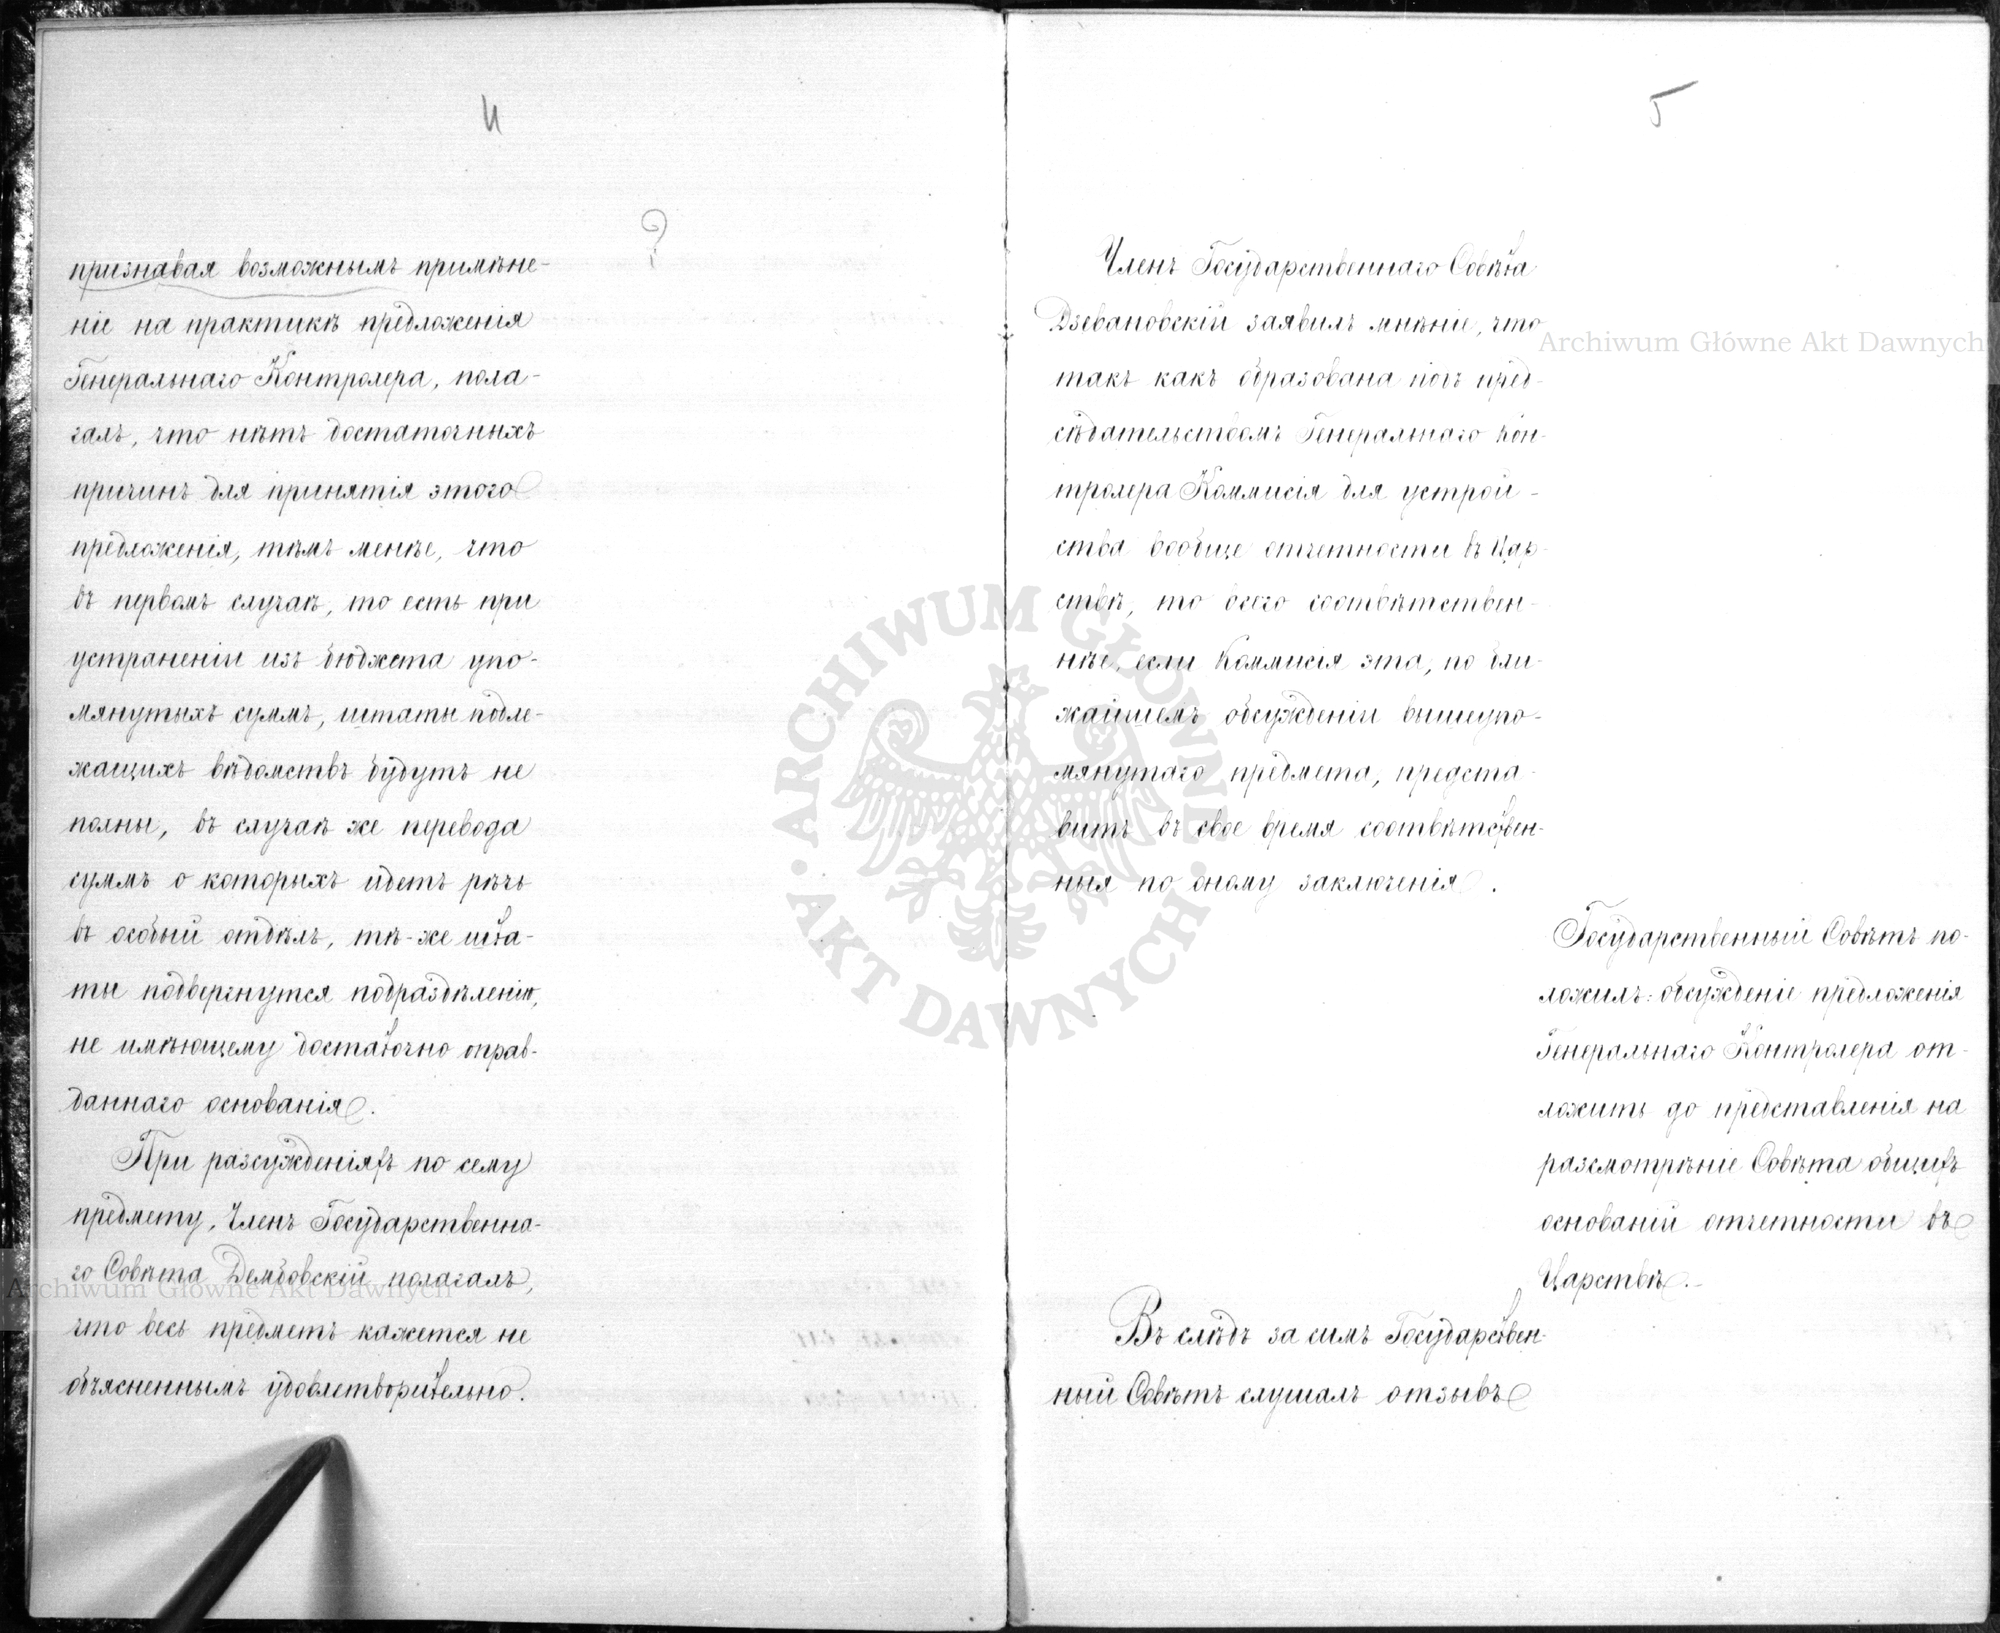 4
?
признавая возможнымъ примѣне-
ніе на практикѣ предложенія
Генеральнаго Контролера, пола-
галъ, что нѣтъ достаточныхъ
причинъ для принятія этого
предложенія, тѣмъ менѣе, что
въ первомъ случаѣ, то есть при
устраненіи изъ бюджета упо-
мянутыхъ суммъ, штаты подле-
жащихъ вѣдомствъ будутъ не
полны, въ случаѣ же перевода
суммъ о которыхъ идетъ рѣчь
въ особый отдѣлъ, тѣ-же шта-
ты подвергнутся подраздѣленію,
не имѣющему достаточно оправ-
даннаго основанія.
При разсужденіяхъ по сему
предмету, Членъ Государственна-
го Совѣта Дембовскій полагалъ,
что весь предметъ кажется не
объясненнымъ удовлетворительно.
5
Членъ Государственнаго Совѣта
Дзевановскій заявилъ мнѣніе, что
такъ какъ образована подъ пред-
сѣдательствомъ Генеральнаго Кон-
тролера Коммисія для устрой-
ства вообще отчетности въ Цар-
ствѣ, то всего соотвѣтствен-
нѣе, если Коммисія эта, по бли-
жайшемъ обсужденіи вышеупо-
мянутаго предмета, предста-
витъ въ свое время соотвѣтствен-
ныя по оному заключенія.
Государственный Совѣтъ по-
ложилъ: обсужденіе предложенія
Генеральнаго Контролера от-
ложить до представленія на
разсмотрѣніе Совѣта общихъ
основаній отчетности въ
Царствѣ.-
Въ слѣдъ за симъ Государствен-
ный Совѣтъ слушалъ отзывъ
Archiwum Główne Akt Dawnych
Archiwum Główne Akt Dawnych
ARCHIWUM GŁÓWNE · AKT DAWNYCH ·